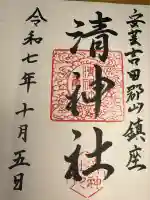 安芸吉田郡山鎮座
清神社
令和七年十月五日